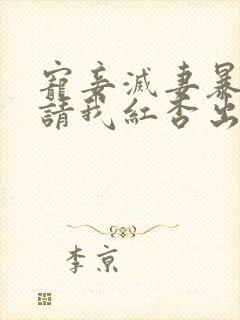 寵妾滅妻暴
請我紅杏出
李京